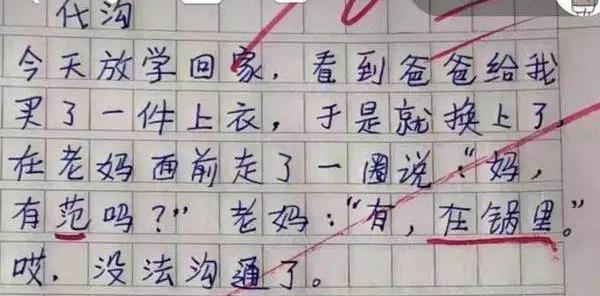 代沟
今天放学回家，看到爸爸给我
买了一件上衣，于是就换上了，
在老妈面前走了一圈说："妈，
有范吗？"老妈："有，在锅里。"
哎，没法沟通了。